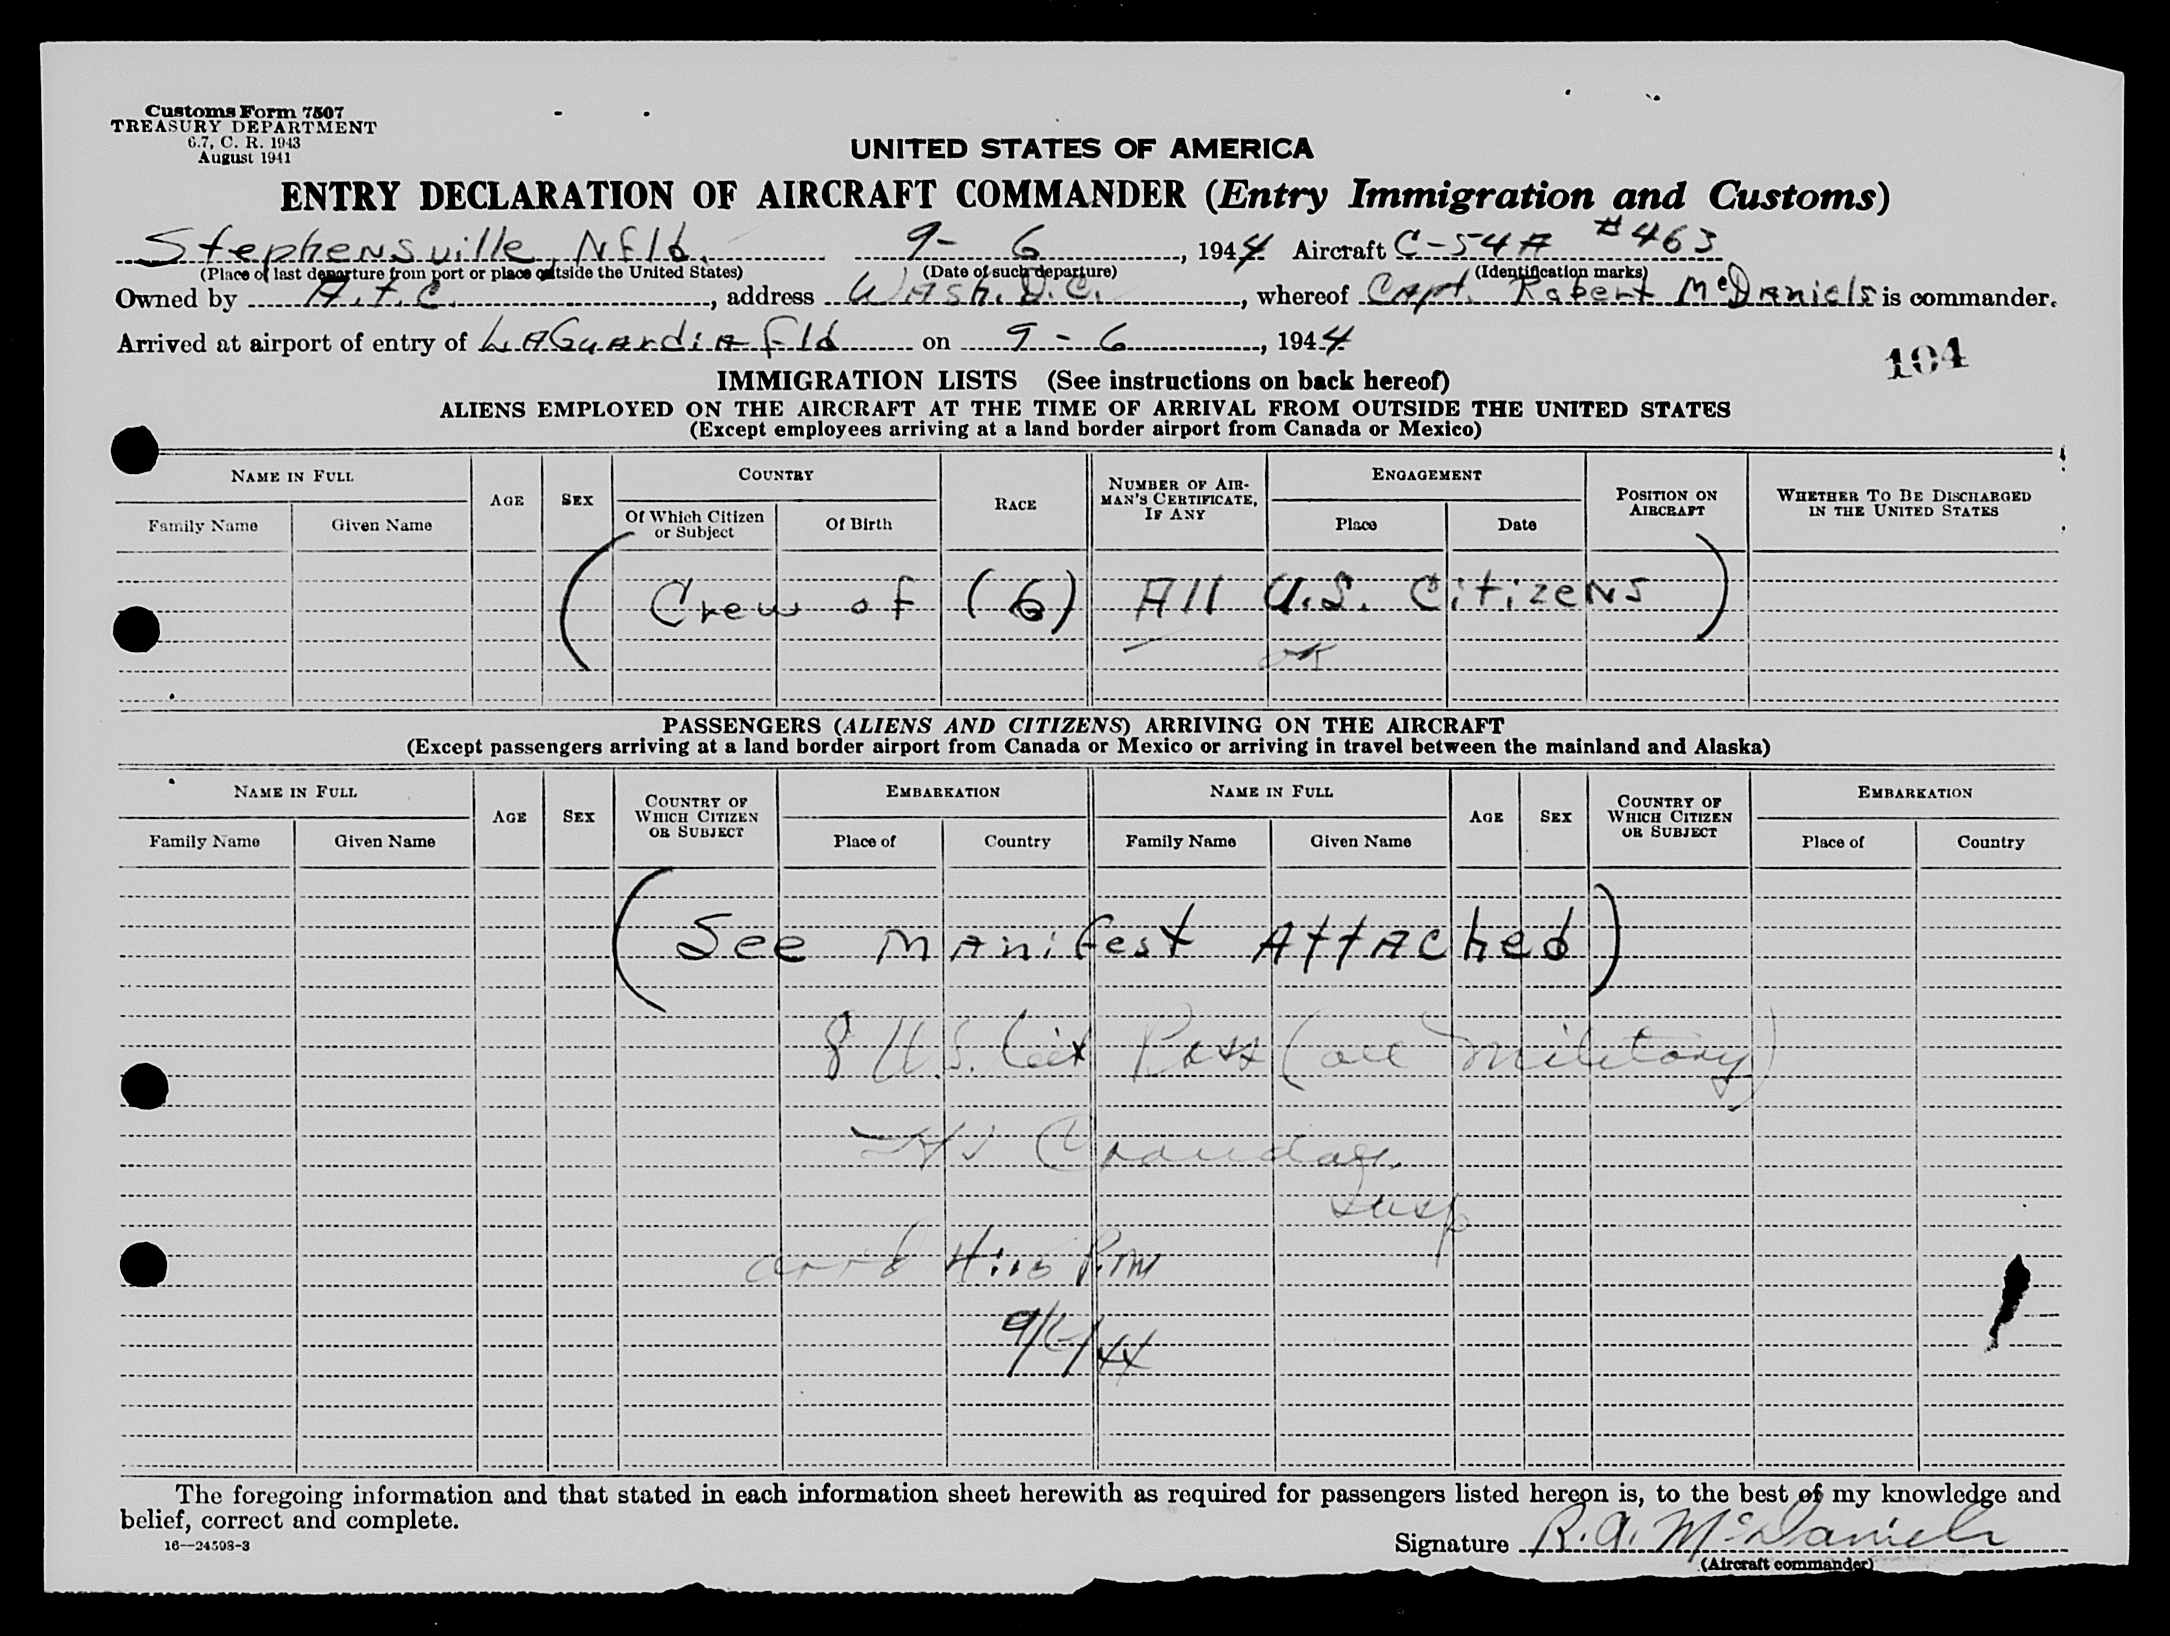 Customs Form 7507
TREASURY DEPARTMENT
6.7, C. R. 1943
August 1941
UNITED STATES OF AMERICA
ENTRY DECLARATION OF AIRCRAFT COMMANDER (Entry Immigration and Customs)
Stephensville, Nfld. 9- 6, 1944 Aircraft C-54A #463
(Place of last departure from port or place outside the United States) (Date of such departure) (Identification marks)
Owned by A.T.C., address Wash. D.C., whereof Capt. Robert McDaniels is commander.
Arrived at airport of entry of LaGuardia Fld on 9-6, 1944
104
IMMIGRATION LISTS (See instructions on back hereof)
ALIENS EMPLOYED ON THE AIRCRAFT AT THE TIME OF ARRIVAL FROM OUTSIDE THE UNITED STATES
(Except employees arriving at a land border airport from Canada or Mexico)
NAME IN FULL AGE SEX COUNTRY RACE NUMBER OF AIRMAN'S CERTIFICATE, IF ANY ENGAGEMENT POSITION ON AIRCRAFT WHETHER TO BE DISCHARGED IN THE UNITED STATES
Family Name Given Name Of Which Citizen or Subject Of Birth Place Date
(Crew of (6) All U.S. Citizens)
OK
PASSENGERS (ALIENS AND CITIZENS) ARRIVING ON THE AIRCRAFT
(Except passengers arriving at a land border airport from Canada or Mexico or arriving in travel between the mainland and Alaska)
NAME IN FULL AGE SEX COUNTRY OF WHICH CITIZEN OR SUBJECT EMBARKATION NAME IN FULL AGE SEX COUNTRY OF WHICH CITIZEN OR SUBJECT EMBARKATION
Family Name Given Name Place of Country Family Name Given Name Place of Country
(See Manifest Attached)
8 U.S. Cit Pass (all Military)
Insp
arrd P.M
9/6/44
The foregoing information and that stated in each information sheet herewith as required for passengers listed hereon is, to the best of my knowledge and
belief, correct and complete.
16—24598-3
Signature R.A. McDaniels
(Aircraft commander)